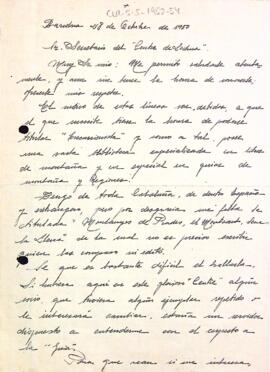 Barcelona 28 de Octubre de 1950
Sr. Secretario del "Centre de Lectura".
Muy Sr. mio: Me permito saludarle atenta-
mente, y aun sin tener la honra de conocerle
ofrecerle mis respetos.
El motivo de estas lineas son debidos, a que
el que suscribe tiene la honra de poseer
titular "Excursionista" y como a tal, posee
una vasta biblioteca especializada en libros
de montaña y en especial en guias de
montaña y Regiones.
Tengo de toda Cataluña, de dentro España
y extranjeras, pero por desgracia me falta la
titulada "Montanyes de Prades, el Montsant, Serra
la Llena" de la cual no se precisa escribir
quien los compuso ni editó.
Se que es bastante dificil el hallarla.
Si hubiera aqui en este glorioso "Centre" algun
socio, que tuviera algun ejemplar repetido o
le interesará cambiar, estaria un servidor
dispuesto a entenderme con el respecto a
la "guia".
Para que vean si me interesa,